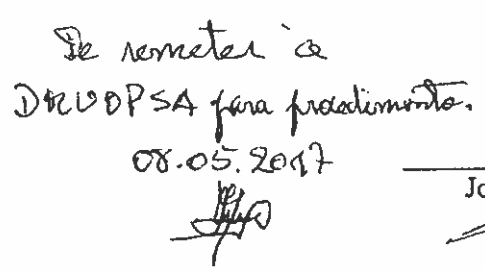 Se remeter à
DRVOPSA para procedimento.
08.05.2017
Jo